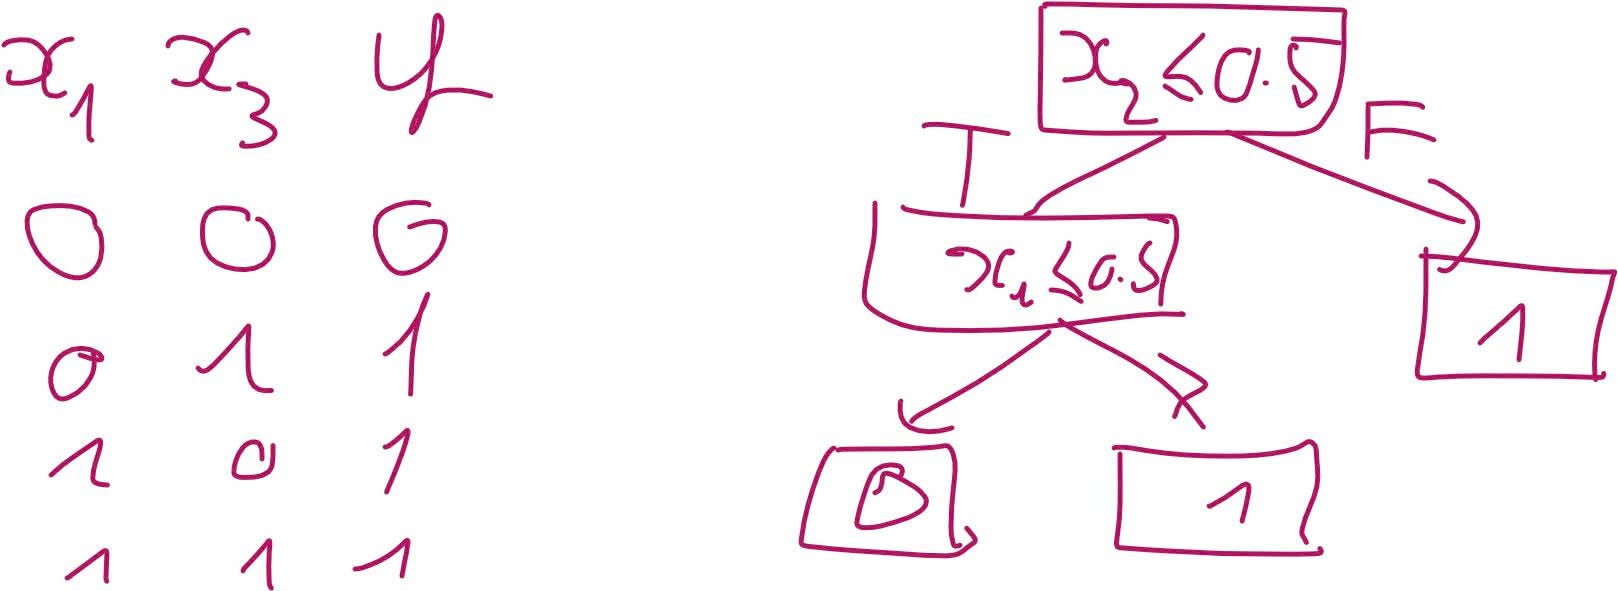 x₁ x₃ y
0 0 0
0 1 1
1 0 1
1 1 1
x₂ ≤ 0.5
T F
x₁ ≤ 0.5
1
0 1